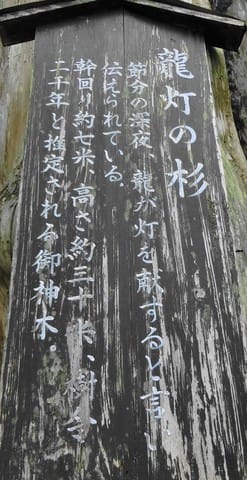 龍灯の杉
節分の深夜、龍が灯を献ずると言い
伝えられている。
幹回り約七米、高さ約三十米、樹令
二千年と推定される御神木。